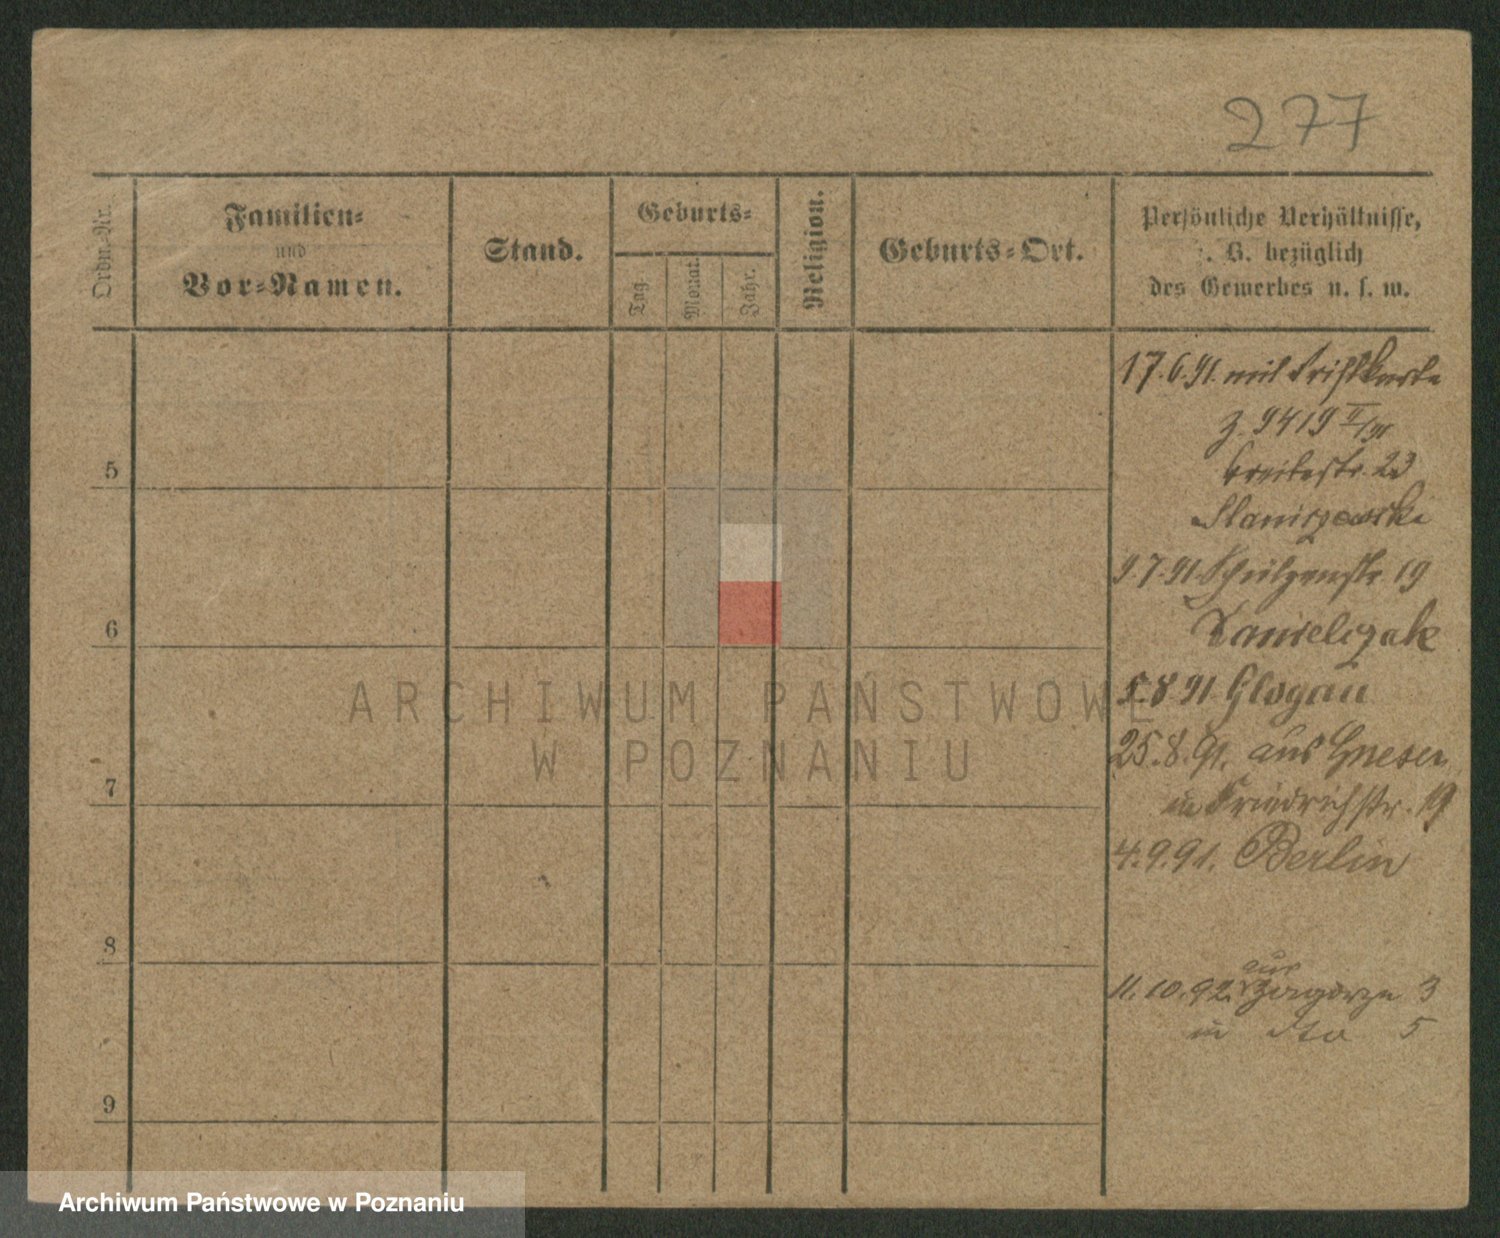 277
Ordn.-Nr.
Familien-
und
Vor-Namen.
Stand.
Geburts-
Tag.
Monat.
Jahr.
Religion.
Geburts-Ort.
Persönliche Verhältnisse,
z. B. bezüglich
des Gewerbes u. s. w.
17.6.91. mit
Z. 9419 II/91
Breitestr. 23
Staniszewski
5
9.7.91. Schützenstr. 19
Danielczak
6
5.8.91 Glogau
25.8.91. aus Gnesen
in Friedrichstr. 19
7
4.9.91. Berlin
8
aus
11.10.92. Zagórze 3
in dto 5
9
ARCHIWUM PAŃSTWOWE
W POZNANIU
Archiwum Państwowe w Poznaniu